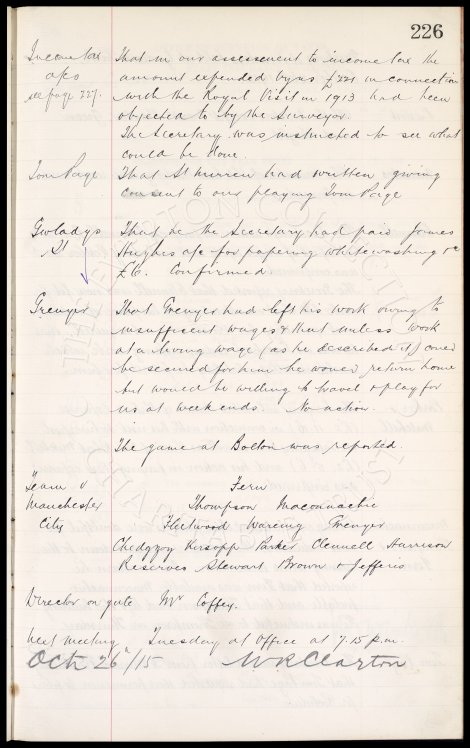 226
Income tax That in our assessment to income tax the
a/cs amount expended by us £221 in connection
see page 227. with the Royal Visit in 1913 had been
objected to by the Surveyor.
The Secretary was instructed to see what
could be done.
Tom Page That St Mirren had written giving
consent to our playing Tom Page
Gwladys That he the Secretary had paid James
St Hughes a/c for papering whitewashing &c
£6. Confirmed
Grenyer That Grenyer had left his work owing to
insufficient wages & that unless work
at a living wage (as he described it) could
be secured for him he would return home
but would be willing to travel & play for
us at week ends. No action.
The game at Bolton was reported.
Team v Fern
Manchester Thompson Maconnachie
City Fleetwood Wareing Grenyer
Chedgzoy Kirsopp Parker Clennell Harrison
Reserves Stewart Brown & Jefferis
Director on gate Mr Coffey.
Next meeting Tuesday at Office at 7.15 p.m.
Oct 26th/15 W.R. Clayton
THE EVERTON COLLECTION
CHARITABLE TRUST